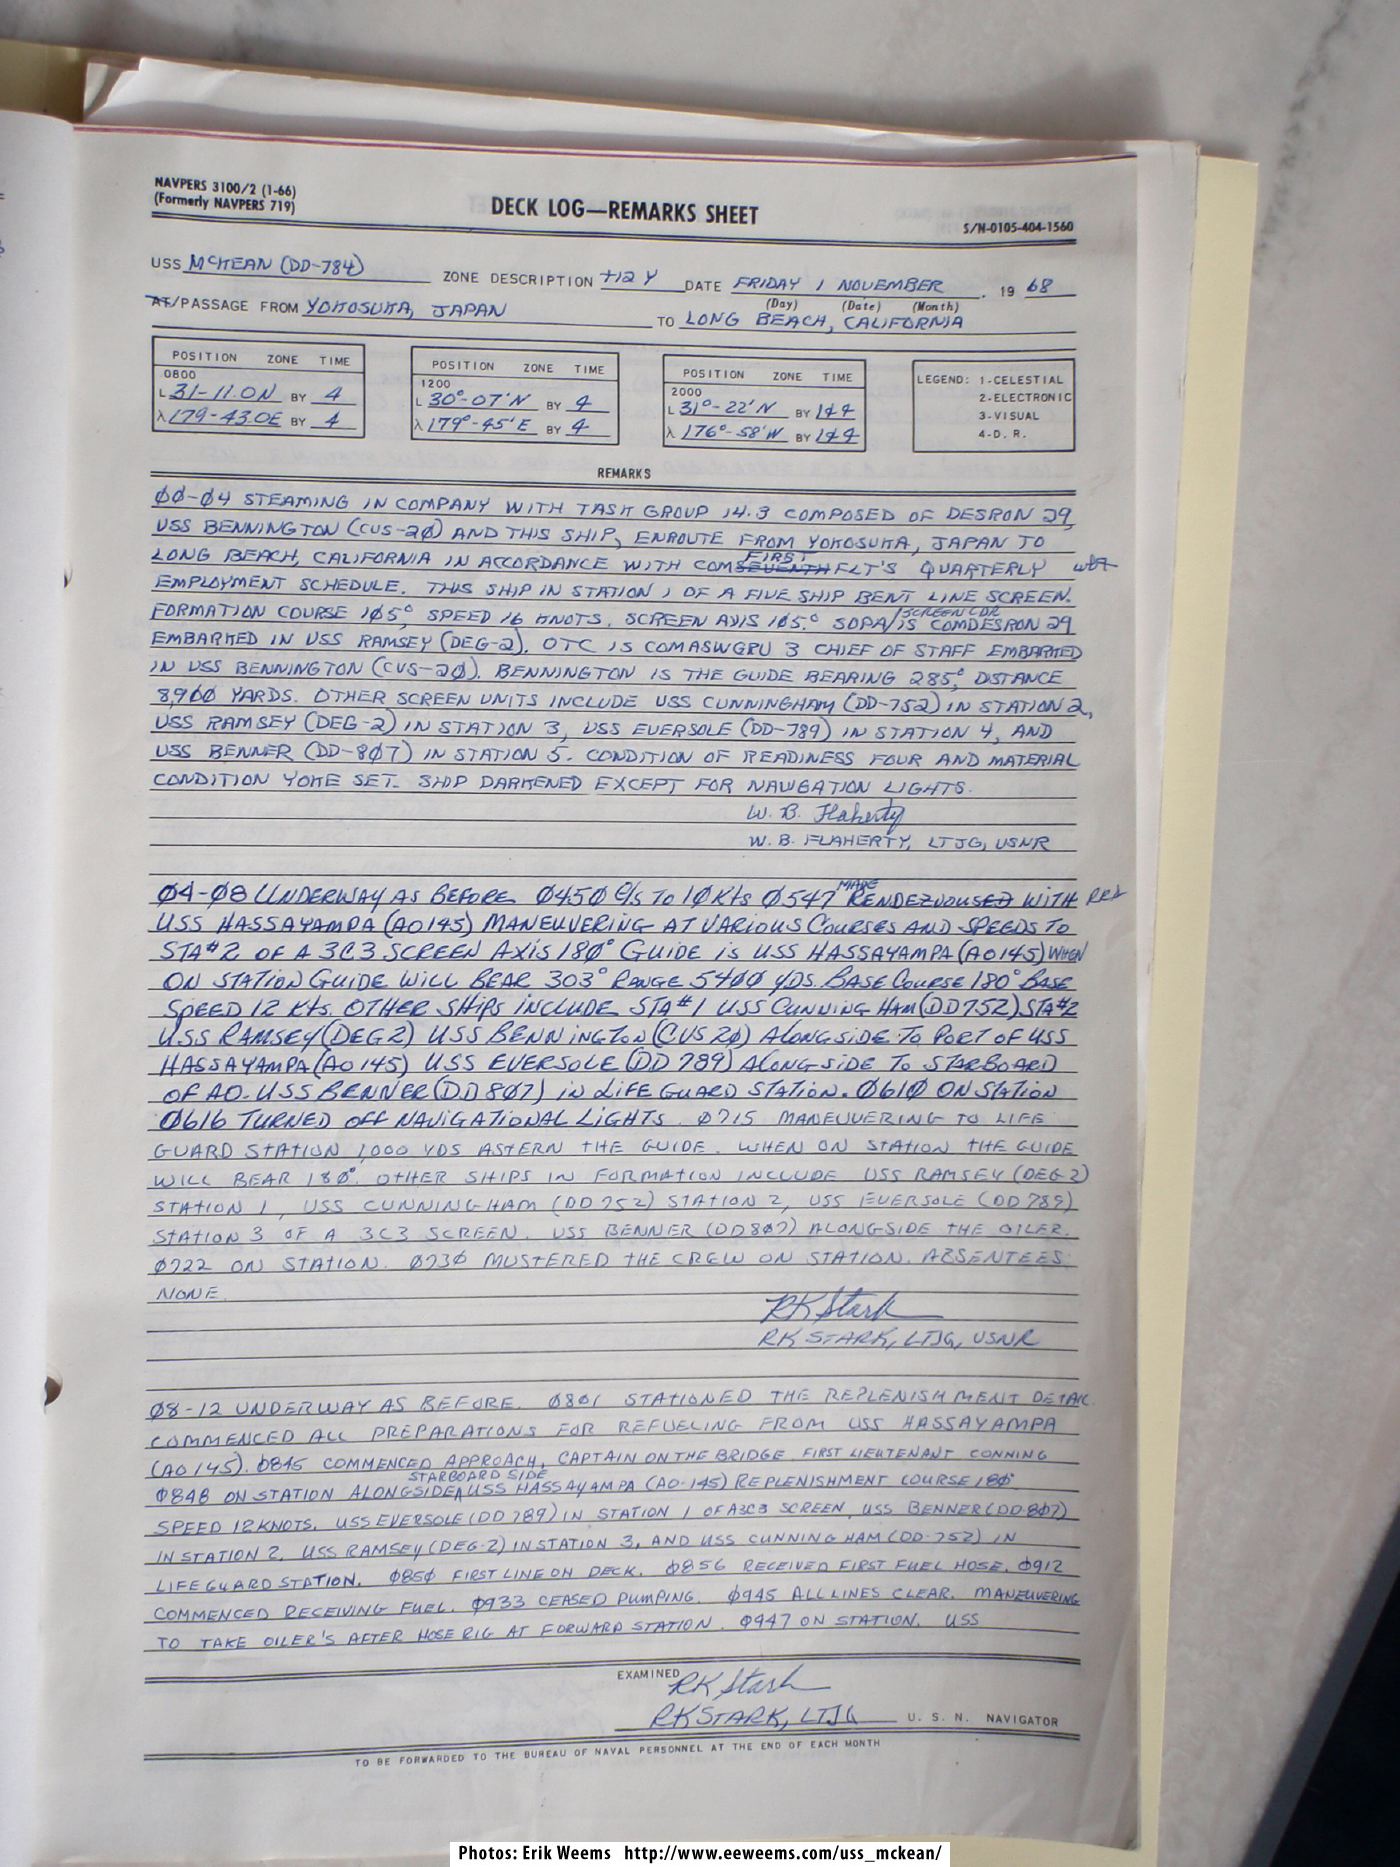 NAVPERS 3100/2 (1-66)
(Formerly NAVPERS 719)
DECK LOG—REMARKS SHEET
S/N-0105-404-1560
USS McKEAN (DD-784) ZONE DESCRIPTION +12 Y DATE FRIDAY 1 NOVEMBER, 19 68
(Day) (Date) (Month)
AT/PASSAGE FROM YOKOSUKA, JAPAN TO LONG BEACH, CALIFORNIA
POSITION ZONE TIME
0800
L 31-11.0N BY 4
λ 179-43.0E BY 4
POSITION ZONE TIME
1200
L 30°-07'N BY 4
λ 179°-45'E BY 4
POSITION ZONE TIME
2000
L 31°-22'N BY 1&4
λ 176°-58'W BY 1&4
LEGEND: 1-CELESTIAL
2-ELECTRONIC
3-VISUAL
4-D. R.
REMARKS
00-04 STEAMING IN COMPANY WITH TASK GROUP 14.3 COMPOSED OF DESRON 29,
USS BENNINGTON (CVS-20) AND THIS SHIP, ENROUTE FROM YOKOSUKA, JAPAN TO
FIRST
LONG BEACH, CALIFORNIA IN ACCORDANCE WITH COMSEVENTHFLT'S QUARTERLY
EMPLOYMENT SCHEDULE. THIS SHIP IN STATION 1 OF A FIVE SHIP BENT LINE SCREEN.
FORMATION COURSE 105°, SPEED 16 KNOTS. SCREEN AXIS 105.° SOPA/SCREEN CDR IS COMDESRON 29
EMBARKED IN USS RAMSEY (DEG-2). OTC IS COMASWGRU 3 CHIEF OF STAFF EMBARKED
IN USS BENNINGTON (CVS-20). BENNINGTON IS THE GUIDE BEARING 285°, DISTANCE
8,900 YARDS. OTHER SCREEN UNITS INCLUDE USS CUNNINGHAM (DD-752) IN STATION 2,
USS RAMSEY (DEG-2) IN STATION 3, USS EVERSOLE (DD-789) IN STATION 4, AND
USS BENNER (DD-807) IN STATION 5. CONDITION OF READINESS FOUR AND MATERIAL
CONDITION YOKE SET. SHIP DARKENED EXCEPT FOR NAVIGATION LIGHTS.
W. B. Flaherty
W. B. FLAHERTY, LTJG, USNR
04-08 UNDERWAY AS BEFORE 0450 C/S TO 10 KTS 0547 MADE RENDEZVOUSED WITH RKS
USS HASSAYAMPA (AO145) MANEUVERING AT VARIOUS COURSES AND SPEEDS TO
STA#2 OF A 3C3 SCREEN AXIS 180° GUIDE IS USS HASSAYAMPA (AO145) WHEN
ON STATION GUIDE WILL BEAR 303° RANGE 5400 YDS. BASE COURSE 180° BASE
SPEED 12 KTS. OTHER SHIPS INCLUDE STA #1 USS CUNNINGHAM (DD752) STA#2
USS RAMSEY (DEG2) USS BENNINGTON (CVS20) ALONGSIDE TO PORT OF USS
HASSAYAMPA (AO145) USS EVERSOLE (DD 789) ALONGSIDE TO STARBOARD
OF AO. USS BENNER (DD807) IN LIFE GUARD STATION. 0610 ON STATION
0616 TURNED OFF NAVIGATIONAL LIGHTS. 0715 MANEUVERING TO LIFE
GUARD STATION 1,000 YDS ASTERN THE GUIDE. WHEN ON STATION THE GUIDE
WILL BEAR 180°. OTHER SHIPS IN FORMATION INCLUDE USS RAMSEY (DEG2)
STATION 1, USS CUNNINGHAM (DD752) STATION 2, USS EVERSOLE (DD789)
STATION 3 OF A 3C3 SCREEN. USS BENNER (DD807) ALONGSIDE THE OILER.
0722 ON STATION. 0730 MUSTERED THE CREW ON STATION. ABSENTEES:
NONE.
RK Stark
RK STARK, LTJG, USNR
08-12 UNDERWAY AS BEFORE. 0801 STATIONED THE REPLENISHMENT DETAIL.
COMMENCED ALL PREPARATIONS FOR REFUELING FROM USS HASSAYAMPA
(AO145). 0845 COMMENCED APPROACH, CAPTAIN ON THE BRIDGE. FIRST LIEUTENANT CONNING
STARBOARD SIDE
0848 ON STATION ALONGSIDE USS HASSAYAMPA (AO-145) REPLENISHMENT COURSE 180°
SPEED 12 KNOTS. USS EVERSOLE (DD 789) IN STATION 1 OF A 3C3 SCREEN, USS BENNER (DD807)
IN STATION 2, USS RAMSEY (DEG-2) IN STATION 3, AND USS CUNNINGHAM (DD-752) IN
LIFEGUARD STATION. 0850 FIRST LINE ON DECK. 0856 RECEIVED FIRST FUEL HOSE. 0912
COMMENCED RECEIVING FUEL. 0933 CEASED PUMPING. 0945 ALL LINES CLEAR. MANEUVERING
TO TAKE OILER'S AFTER HOSE RIG AT FORWARD STATION. 0947 ON STATION. USS
EXAMINED RK Stark
RK STARK, LTJG U. S. N. NAVIGATOR
TO BE FORWARDED TO THE BUREAU OF NAVAL PERSONNEL AT THE END OF EACH MONTH
Photos: Erik Weems http://www.eeweems.com/uss_mckean/